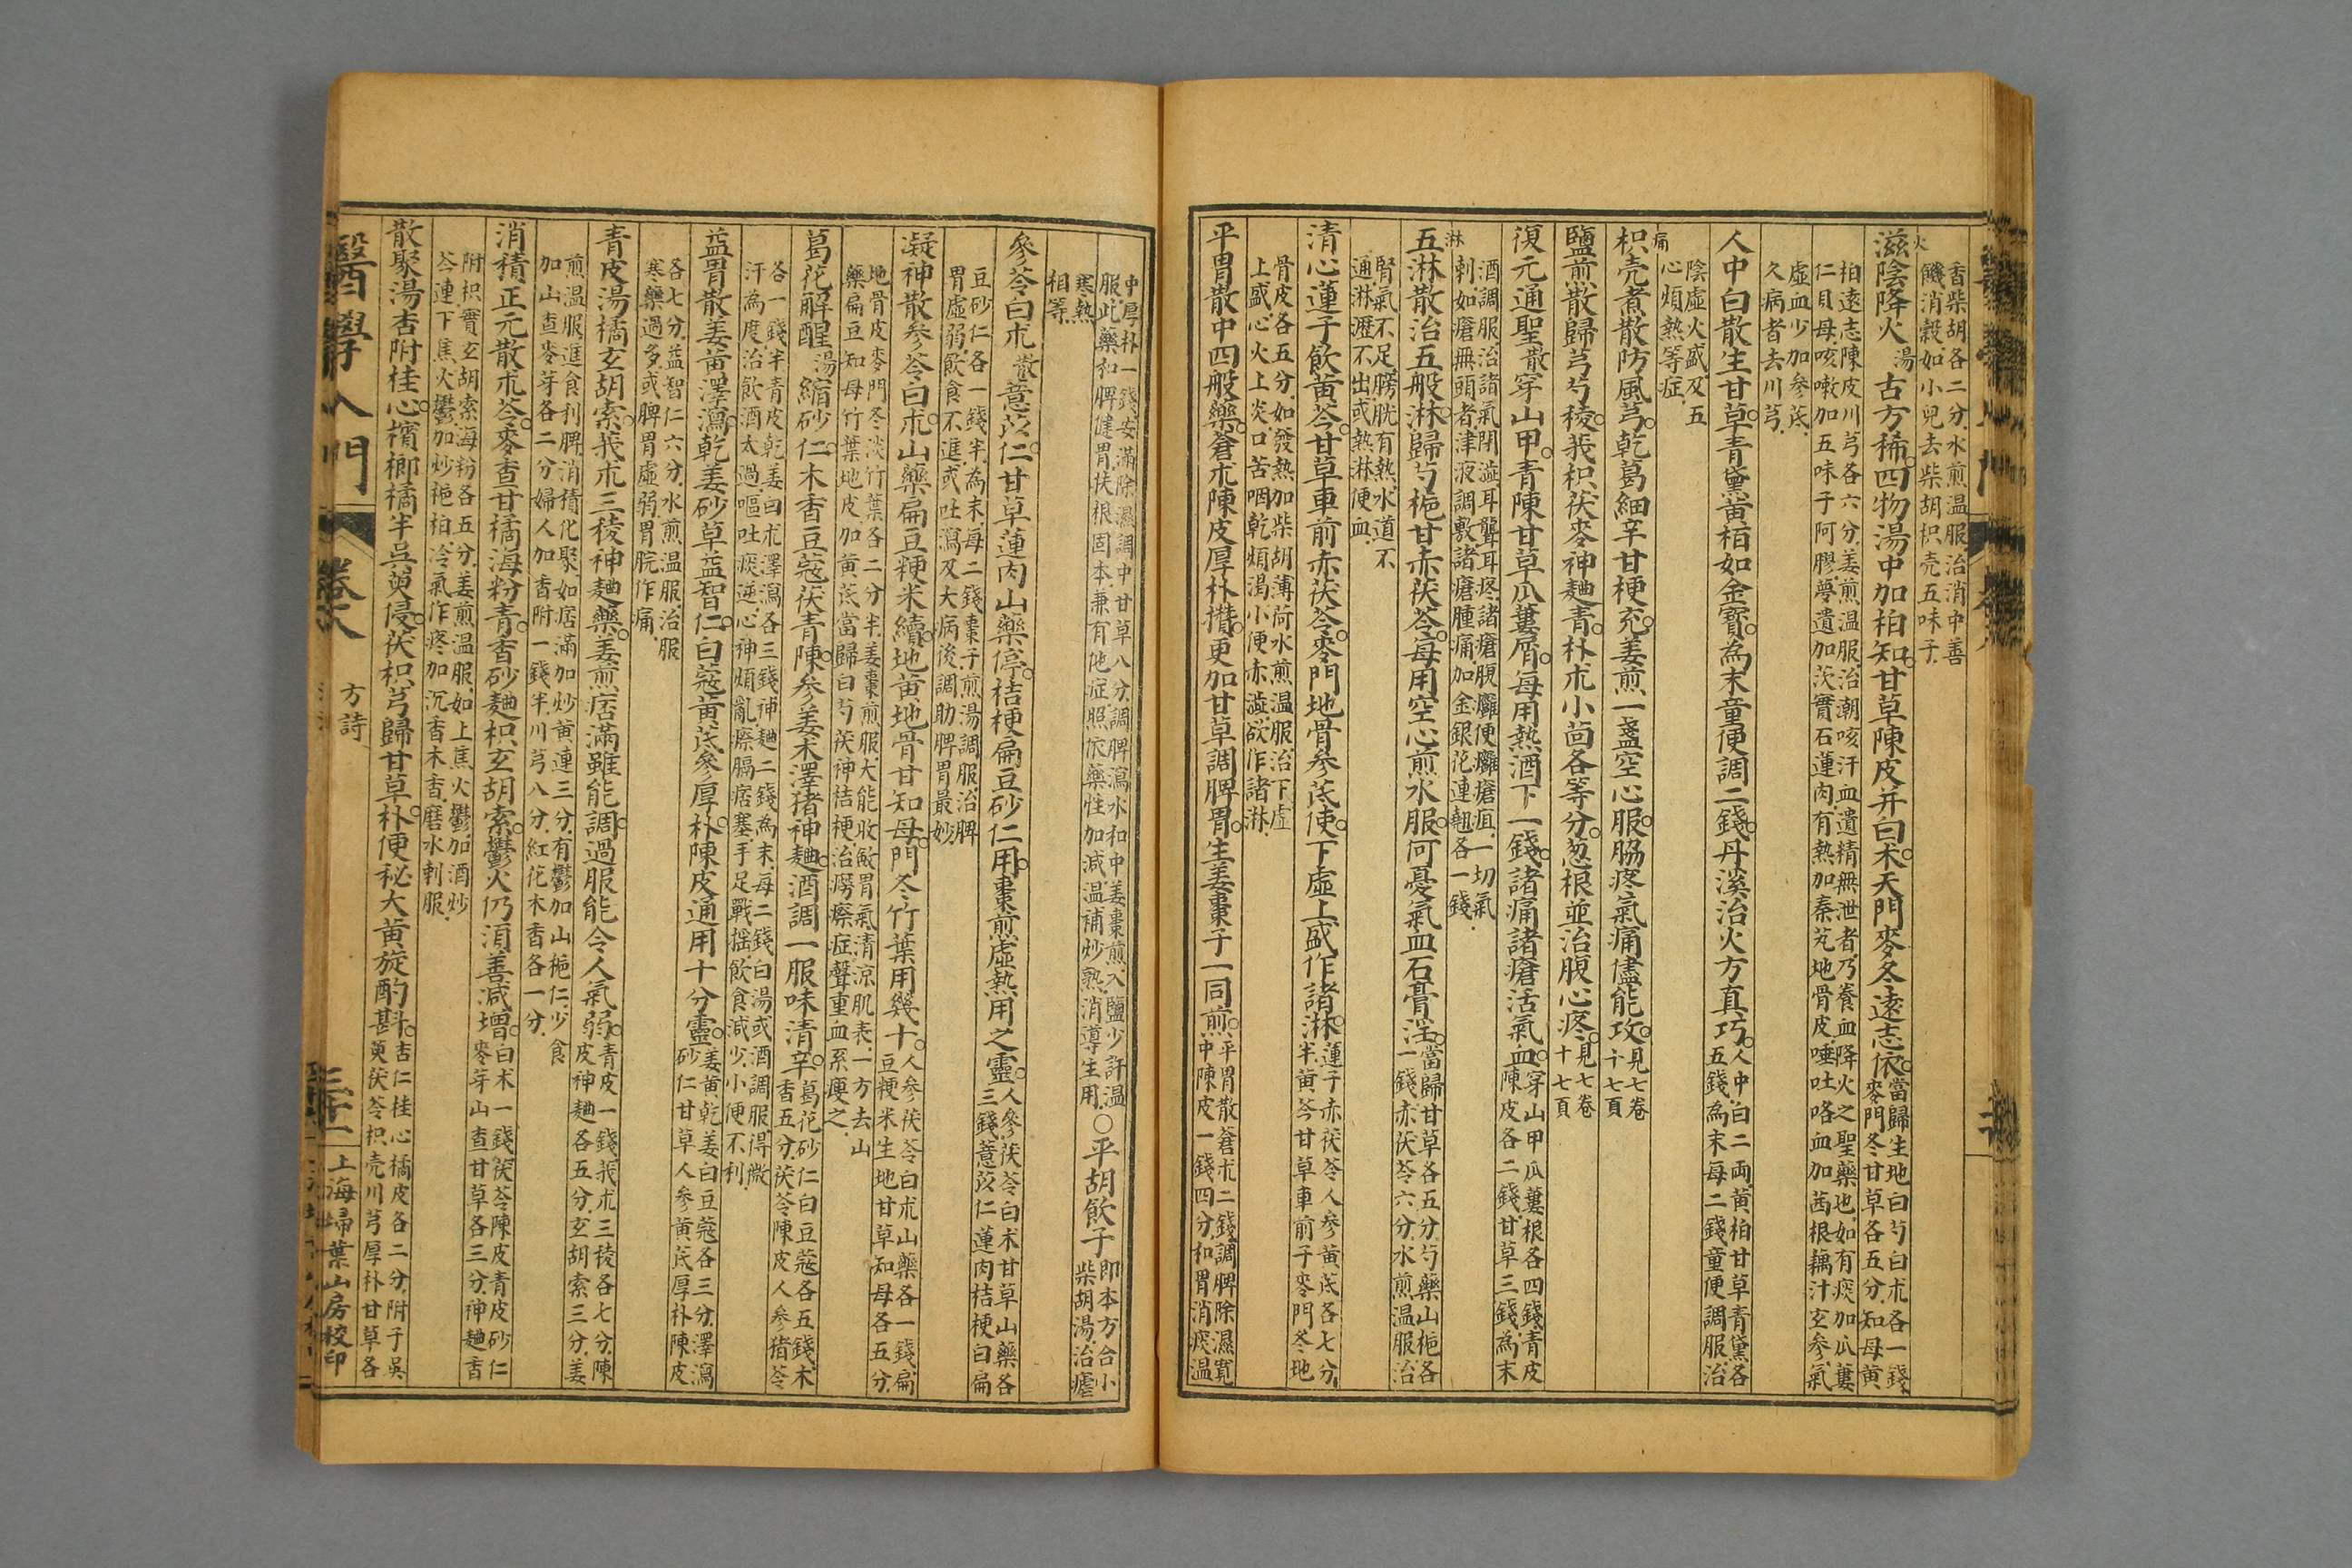 香柴胡各二分水煎温服治消中善
饑消穀如小兒去柴胡枳壳五味子
火
滋陰降火湯古方稀四物湯中加柏知甘草陳皮并白朮天門麥冬遠志依
當歸生地白芍白朮各一錢
麥門冬甘草各五分知母黄
柏遠志陳皮川芎各六分姜煎温服治潮咳汗血遺精無泄者乃養血降火之聖藥也如有痰加瓜蔞
仁貝母咳嗽加五味子阿膠夢遺加茨實石蓮肉有熱加秦艽地骨皮唾吐咯血加茜根藕汁玄參氣
虛血少加參芪
久病者去川芎
人中白散生甘草青黛黄栢如金寳為末童便調二錢丹溪治火方真巧
人中白二両黄柏甘草青黛各
五錢為末每二錢童便調服治
陰虛火盛及五
心煩熱等症
痛
枳壳煮散防風芎乾葛細辛甘梗充姜煎一盞空心服脇疼氣痛儘能攻
見七卷
十七頁
鹽煎散歸芎芍稜莪枳茯麥神麯青朴朮小茴各等分葱根並治腹心疼
見七卷
十七頁
復元通聖散穿山甲青陳甘草瓜蔞屑每用熱酒下一錢諸痛諸瘡活氣血
穿山甲瓜蔞根各四錢青皮
陳皮各二錢甘草三錢為末
酒調服治諸氣閉澁耳聾耳疼諸瘡腹癰便癰瘡疽一切氣
刺如瘡無頭者津液調敷諸瘡腫痛加金銀花連翹各一錢
淋
五淋散治五般淋歸芍梔甘赤茯苓每用空心煎水服何憂氣血石膏淫
當歸甘草各五分芍藥山梔各
一錢赤茯苓六分水煎温服治
腎氣不足膀胱有熱水道不
通淋瀝不出或熱淋便血
清心蓮子飲黄芩甘草車前赤茯苓麥門地骨參芪使下虛上盛作諸淋
蓮子赤茯苓人參黄芪各七分
半黄芩甘草車前子麥門冬地
骨皮各五分如發熱加柴胡薄荷水煎温服治下虛
上盛心火上炎口苦咽乾煩渴小便赤澁欲作諸淋
平胃散中四般藥蒼朮陳皮厚朴攢更加甘草調脾胃生姜棗子一同煎
平胃散蒼朮二錢調脾除濕寬
中陳皮一錢四分和胃消痰温
中厚朴一錢安滿除濕調中甘草八分調脾瀉水和中姜棗煎入鹽少許温
服此藥和脾健胃伏根固本兼有他症照依藥性加減温補炒熟消導生用
○平胡飲子
即本方合小
柴胡湯治瘧
寒熱
相等
參苓白朮散薏苡仁甘草蓮肉山藥停桔梗扁豆砂仁用棗煎虛熱用之靈
人參茯苓白朮甘草山藥各
三錢薏苡仁蓮肉桔梗白扁
豆砂仁各一錢半為末每二錢棗子煎湯調服治脾
胃虛弱飲食不進或吐瀉及大病後調助脾胃最妙
凝神散參苓白朮山藥扁豆粳米續地黄地骨甘知母門冬竹葉用幾十
人參茯苓白朮山藥各一錢扁
豆粳米生地甘草知母各五分
地骨皮麥門冬淡竹葉各二分半姜棗煎服大能收斂胃氣清涼肌表一方去山
藥扁豆知母竹葉地皮加黄芪當歸白芍茯神桔梗治癆瘵症聲重血系痩之
葛花解醒湯縮砂仁木香豆蔻茯青陳參姜朮澤猪神麯酒調一服味清辛
葛花砂仁白豆蔻各五錢木
香五分茯苓陳皮人參猪苓
各一錢半青皮乾姜白朮澤瀉各三錢神麯二錢為末每二錢白湯或酒調服得微
汗為度治飲酒太過嘔吐痰逆心神煩亂瘵膈痞塞手足戰摇飲食減少小便不利
益胃散姜黄澤瀉乾姜砂草益智仁白蔻黄芪參厚朴陳皮通用十分靈
姜黄乾姜白豆蔻各三分澤瀉
砂仁甘草人參黄芪厚朴陳皮
各七分益智仁六分水煎温服治服
寒藥過多或脾胃虛弱胃脘作痛
青皮湯橘玄胡索莪朮三稜神麯藥姜煎痞滿雖能調過服能令人氣弱
青皮一錢莪朮三稜各七分陳
皮神麯各五分玄胡索三分姜
煎温服進食利脾消積化聚如痞滿加炒黄連三分有鬱加山梔仁少食
加山查麥芽各二分婦人加香附一錢半川芎八分紅花木香各一分
消積正元散朮苓麥查甘橘海粉青香砂麯枳玄胡索鬱火仍須善減增
白朮一錢茯苓陳皮青皮砂仁
麥芽山查甘草各三分神麯香
附枳實玄胡索海粉各五分姜煎温服如上焦火鬱加酒炒
芩連下焦火鬱加炒梔柏冷氣作疼加沉香木香磨水刺服
散聚湯杏附桂心檳榔橘半吳萸侵茯枳芎歸甘草朴便秘大黄旋酌斟
杏仁桂心橘皮各二分附子吳
萸茯苓枳壳川芎厚朴甘草各
醫學入門
卷六
方詩
上海埽葉山房校印